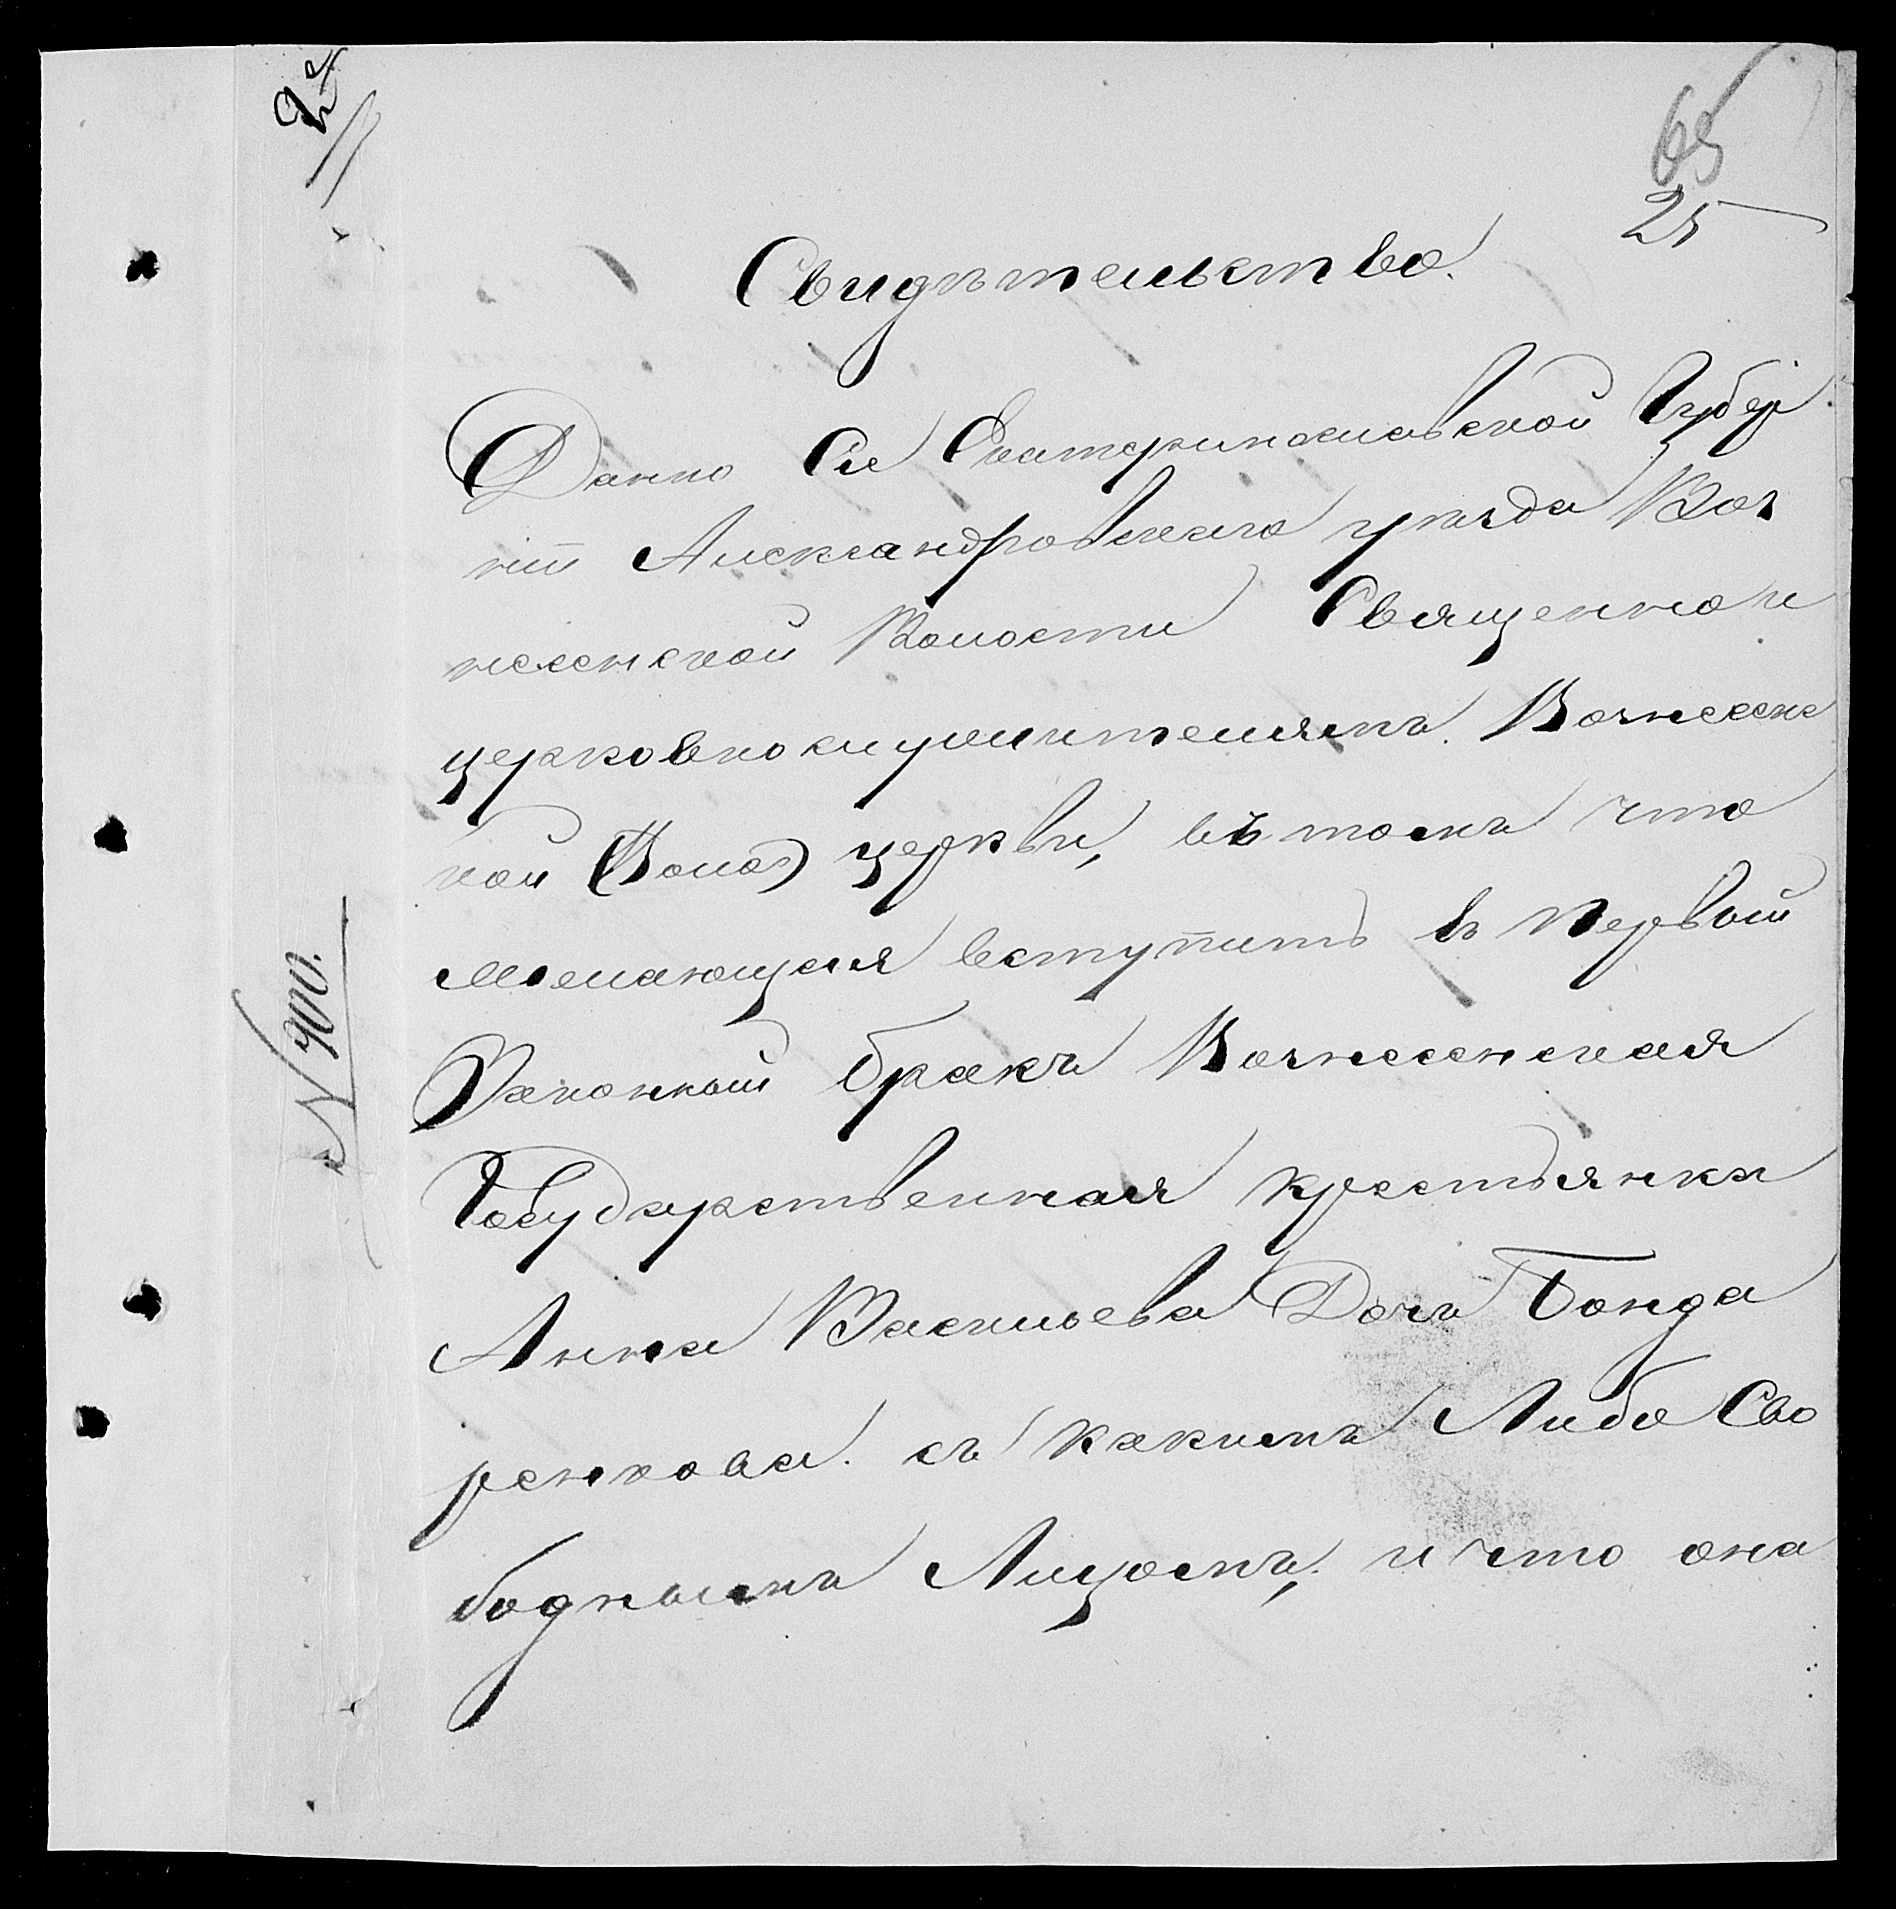 65
25
Свидѣтельство.
Данно Сіе Екатеринославской Губер
ніи Александровскаго уѣзда Воз
несенской Волости Священно и
церковнослужителямъ. Вознесенс
кой церкви, въ томъ что
желающая вступить въ первый
Законный бракъ Вознесенская
Государственная крестьянка
Анна Васильева Дочь Бонда
ренкова. съ какимъ Либо Сво
боднымъ Лицомъ, и что она
N 900.